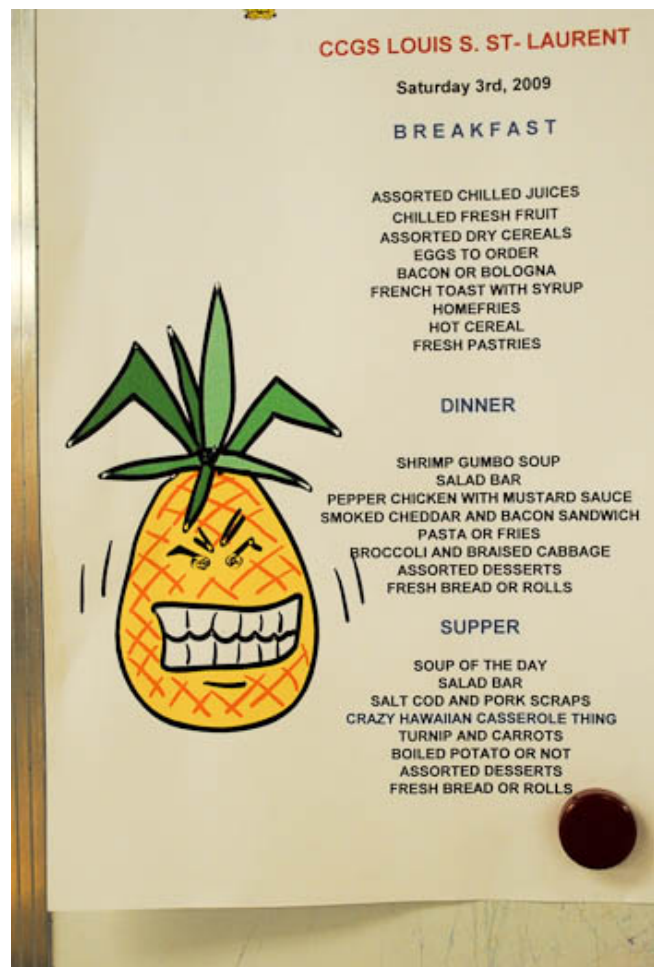 CCGS LOUIS S. ST- LAURENT
Saturday 3rd, 2009
BREAKFAST
ASSORTED CHILLED JUICES
CHILLED FRESH FRUIT
ASSORTED DRY CEREALS
EGGS TO ORDER
BACON OR BOLOGNA
FRENCH TOAST WITH SYRUP
HOMEFRIES
HOT CEREAL
FRESH PASTRIES
DINNER
SHRIMP GUMBO SOUP
SALAD BAR
PEPPER CHICKEN WITH MUSTARD SAUCE
SMOKED CHEDDAR AND BACON SANDWICH
PASTA OR FRIES
BROCCOLI AND BRAISED CABBAGE
ASSORTED DESSERTS
FRESH BREAD OR ROLLS
SUPPER
SOUP OF THE DAY
SALAD BAR
SALT COD AND PORK SCRAPS
CRAZY HAWAIIAN CASSEROLE THING
TURNIP AND CARROTS
BOILED POTATO OR NOT
ASSORTED DESSERTS
FRESH BREAD OR ROLLS